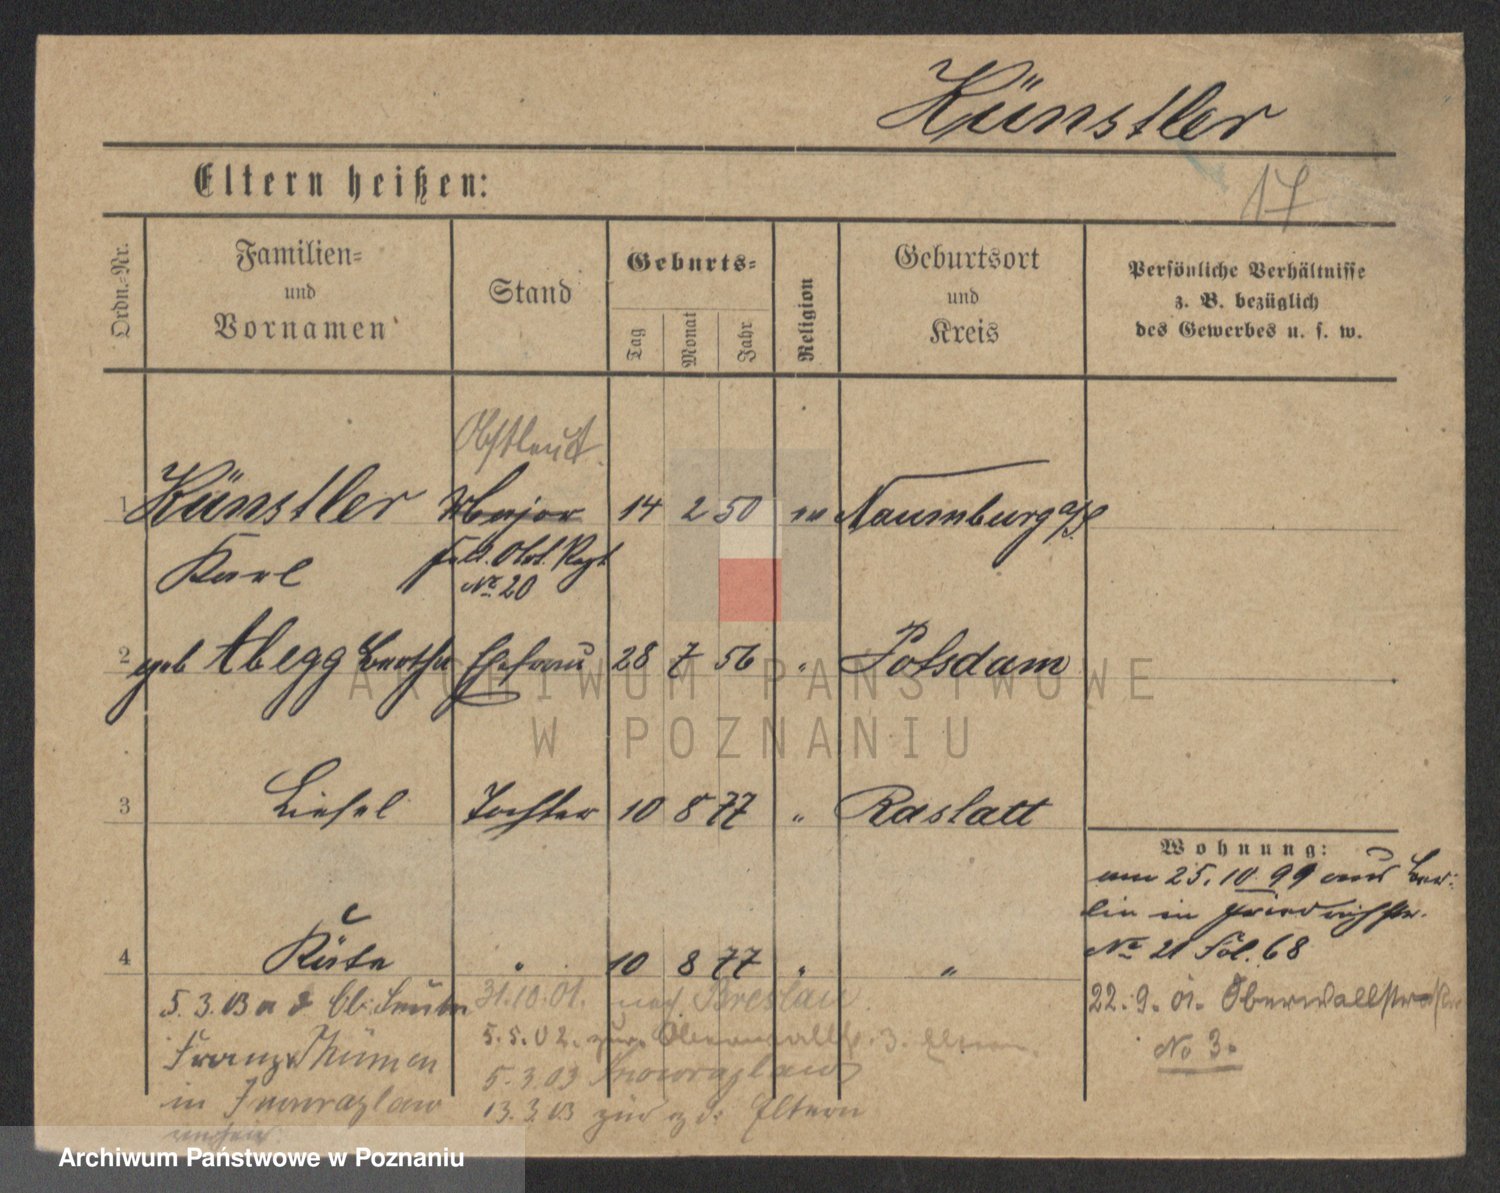 Künstler
Eltern heißen:
17
Ordn.-Nr.
Familien-
und
Vornamen
Stand
Geburts-
Tag
Monat
Jahr
Religion
Geburtsort
und
Kreis
Persönliche Verhältnisse
z. B. bezüglich
des Gewerbes u. s. w.
Obstleut.
1 Künstler Major 14 2 50 Naumburg a/S
Karl Feld. Regt
No 20
2 geb Abegg Bertha Ehefrau 28 7 56 " Potsdam
3 Liesel Tochter 10 8 77 " Rastatt
4 Käte " 10 8 77 " "
Wohnung:
am 25.10.99 aus Ber-
lin in Friedrichstr.
No 21 Fol. 68
22.9.01. Oberwallstraße
No 3.
5.3.03
Franz Thümen
in Inowrazlaw
31.10.01. nach Breslau
5.5.02. zur. 3. Eltern
5.3.03 Inowrazlaw
13.3.03 Eltern
ARCHIWUM PAŃSTWOWE
W POZNANIU
Archiwum Państwowe w Poznaniu